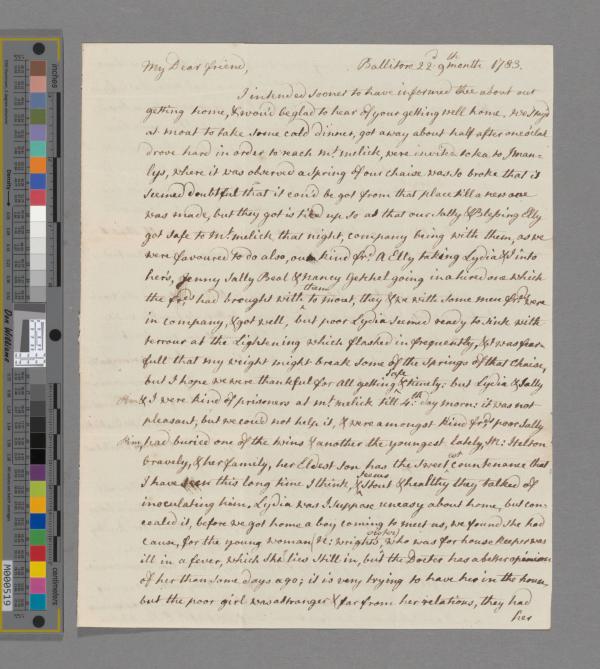 My Dear friend, Ballitore 22d 9th month 1783.
I intended sooner to have informed thee about our
getting home, & wou'd be glad to hear of your getting well home. we stay'd
at moat to take some cold dinner, got away about half after one o'clock
drove hard in order to reach Mt. melick, were invited to tea to J man-
lys, where it was observed a spring of our chaise was so broke that it
seemed doubtful that it cou'd be got from that place till a new one
was made, but they got it tied up so as that our Sally & Blessing Elly
got safe to Mt. melick that night, company being with them, as we
were favoured to do also, our kind frd. A Elly taking Lydia & I into
hers, Jenny Sally Beal & nancy Getchel going in a hired one which
the frds. had brought with them to moat, they & we with some men frds. were
in company, & got well, but poor Lydia seemed ready to sink with
terrour at the Lightening which flashed in frequently, & I was fear-
full that my weight might break some of the springs of that chaise,
but I hope we were thankful for all getting safe & timely: but Lydia & Sally
& I were kind of prisoners at Mt. melick till 4th. day morn: it was not
pleasant, but we cou'd not help it, & were amongst kind frds. poor Sally
had buried one of the twins & another the youngest lately, M: Helton
bravely, & her family, her Eldest son has the sweetest countenance that
I have seen this long time I think, seems stout & healthy they talked of
inoculating him. Lydia was I suppose uneasy about home, but con-
cealed it, before we got home a boy coming to meet us, we found she had
cause, for the young woman N: wrights sister, who was for housekeeper was
ill in a fever, which she lies still in, but the Doctor has a better opinion
of her than some days ago; it is very trying to have her in the house,
but the poor girl was a stranger & far from her relations, they had
her
inches
centimeters
Density
Don Williams
M000519